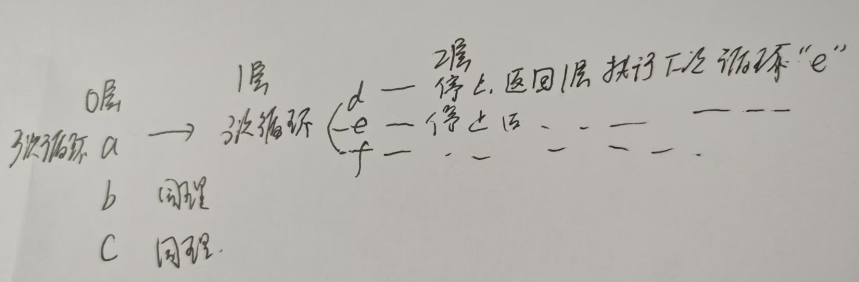 0层 1层 2层
3次循环 a → 3次循环 d — 停止,返回1层 执行下次循环"e"
e — 停止后
f —
b 同理
C 同理.